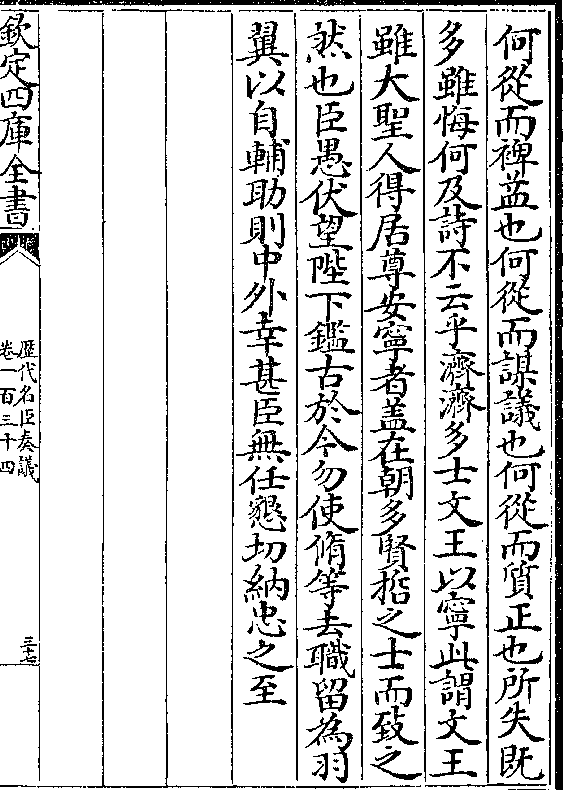 何從而裨益也何從而謀議也何從而質正也所失既
多雖悔何及詩不云乎濟濟多士文王以寧此謂文王
雖大聖人得居尊安寧者盖在朝多賢哲之士而致之
然也臣愚伏望陛下鑑古於今勿使脩等去職留為羽
翼以自輔助則中外幸甚臣無任懇切納忠之至
欽定四庫全書
歴代名臣奏議
卷一百三十四
三十七